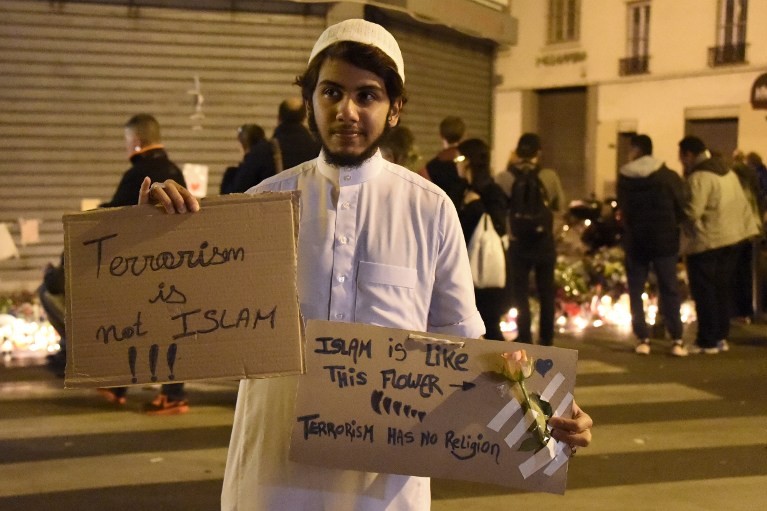 Terrorism
is
not ISLAM
!!!
ISLAM is Like
THIS FLOWER →
TERRORISM HAS NO Religion